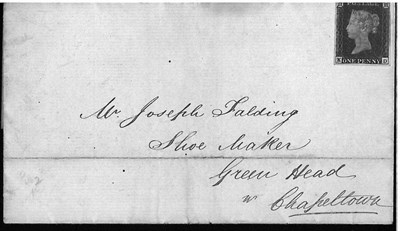 POSTAGE
ONE PENNY
Mr. Joseph Falding
Shoe Maker
Green Head
nr Chapeltown